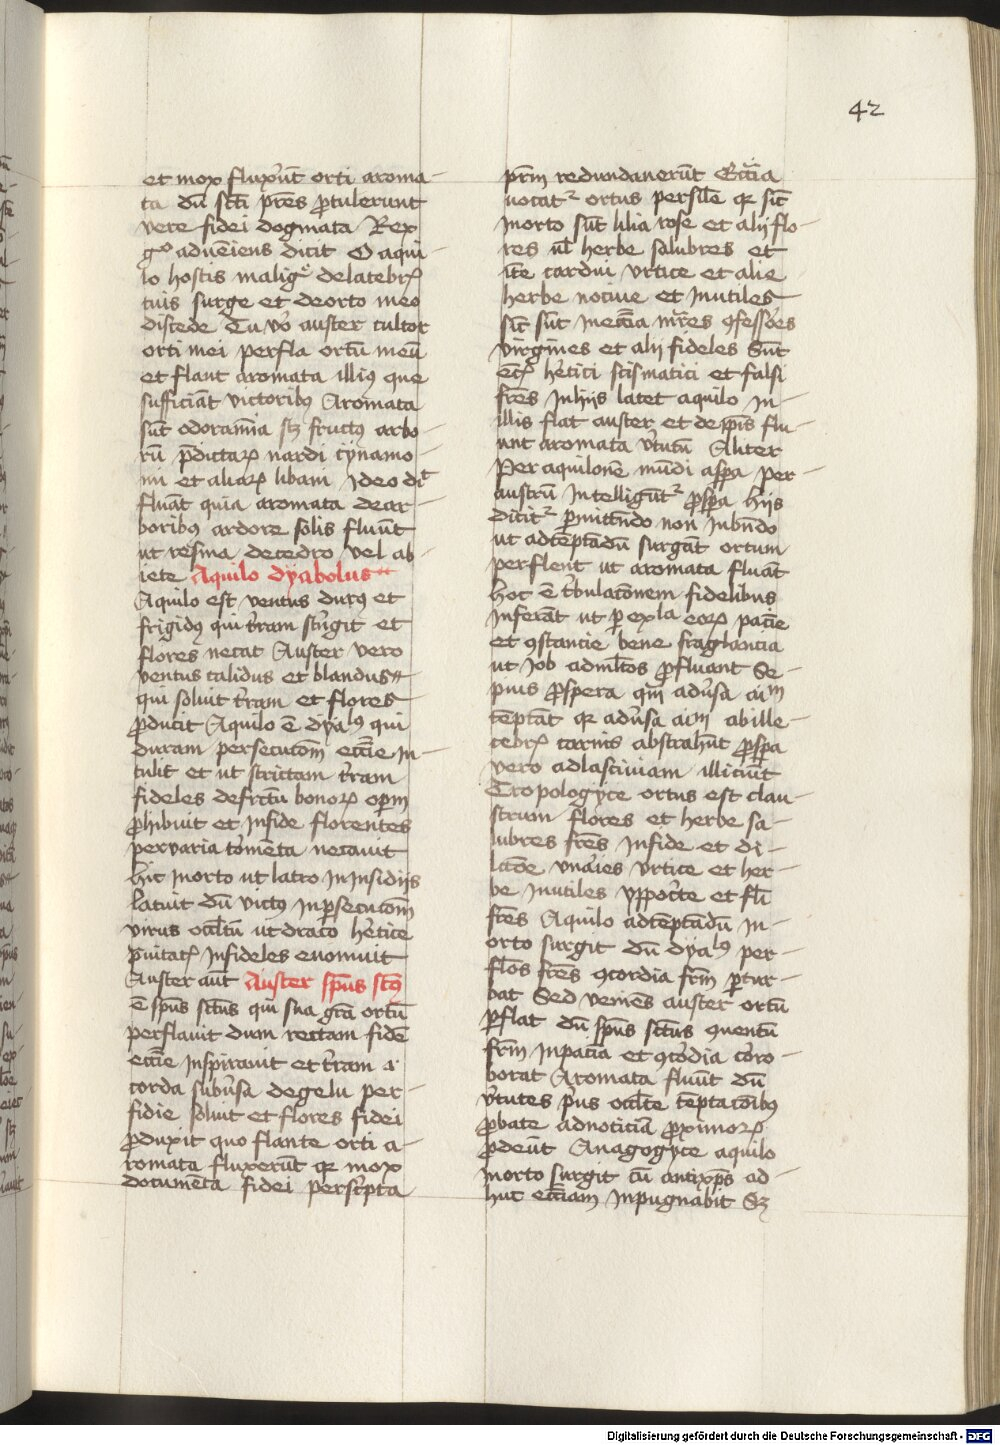 42
et mox fluxerūt orti aroma-
ta dū scti pres ꝓtulerunt
vere fidei dogmata Rex
gͦ adueniens dicit O aqui-
lo hostis malige delatebrꝭ
tuis surge et deorto meo
discede Tu vo auster cultor
orti mei perfla ortū meū
et fluant aromata illiꝰ que
sufficiāt victoribꝰ Aromata
sūt odoramīa sꝫ fructꝰ arbo-
rū pdictaꝝ nardi cynamo-
mi et aliaꝝ libani Ideo dit
fluāt quia aromata de ar-
boribꝰ ardore solis fluūt
ut resina de cedro vel ab-
iete Aquilo dyabolus
Aquilo est ventus durꝰ et
frigidꝰ qui tram stīgit et
flores necat Auster vero
ventus calidus et blandus
qui soluit tram et flores
ꝓducit Aquilo ē dyalꝰ qui
duram persecutōm eccīe in-
tulit et ut strictam tram
fideles defrctū bonoꝝ opm
ꝓhibuit et infide florentes
per varia tormēta necauit
hic inorto ut latro in insidijs
latuit dū victꝰ inpsecutōm
virus occltū ut draco hetice
prauitatꝭ infideles euomuit
Auster aūt Auster spūs sctꝰ
ē spūs sctūs qui sua grā ortū
perflauit dum rectam fidē
eccīe inspirauit et tram .i.
corda subusa degelu per-
fidie soluit et flores fidei
ꝓduxit quo flante orti a-
romata fluxerūt qꝛ mox
documēta fidei perscīpta
prm redundauerūt Eccīa
uocatᷣ ortus persile qꝛ sict
inorto sūt lilia rose et alij flo-
res ul herbe salubres et
ite cardui vrtice et alie
herbe nociue et inutiles
sic sūt ineccīa mres ꝯfessores
virgines et alij fideles Sūt
etꝭ hetici scismatici et falsi
fres Inhijs latet aquilo in
illis flat auster et deipīs flu-
unt aromata vtutū Aliter
Per aquilonē mūdi aspa per
austrū intelligūtᷣ ꝓspa hijs
dicitᷣ pmittendo non iubndo
ut adtēptadū surgāt ortum
perflent ut aromata fluāt
hoc ē tbulatōnem fidelibus
inferāt ut p exla eoꝝ patīe
et ꝯstancie bene fraglancia
ut Job admltos ꝓfluant Se-
pius ꝓspera qm adusa aim
tēptāt qꝛ adusa aim abille-
cebrꝭ carnis abstrahūt ꝓspa
vero adlasciuiam illiciūt
Tropologyce ortus est clau-
strum flores et herbe sa-
lubres fres infide et di-
lctōe vnaīes vrtice et her-
be inutiles yppocrte et fli
fres Aquilo adtēptadū in
orto surgit dū dyalꝰ per
flōs fres ꝯcordia frm ptur-
bat Sed veniēs auster ortū
pflat dū spūs sctūs ꝯuentū
frm inpatīa et ꝯcōdia coro-
borat Aromata fluūt dū
vtutes pus occlte tēptacōibꝰ
ꝓbate adnoticiā ꝓximoꝝ
ꝓdeūt Anagogyce aquilo
inorto surgit cū antixps ad-
huc eccīam inpugnabit Sꝫ
Digitalisierung gefördert durch die Deutsche Forschungsgemeinschaft - DFG